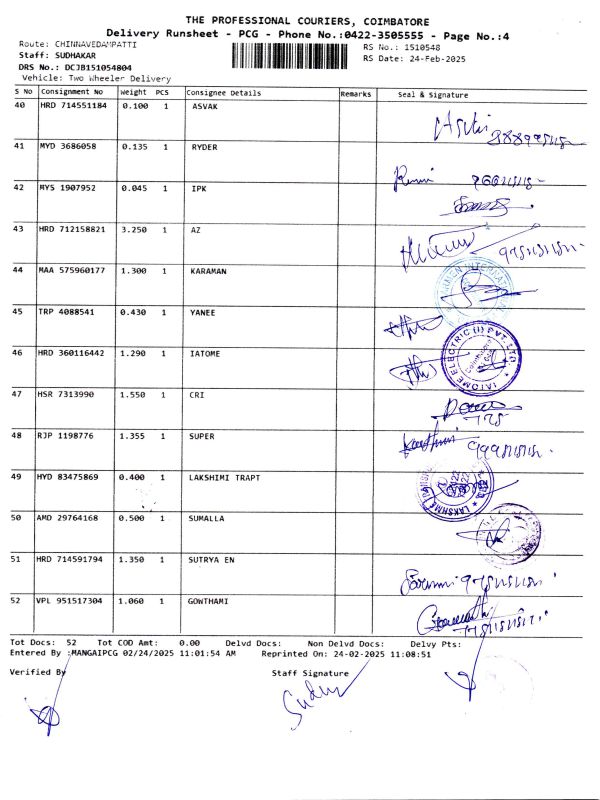 THE PROFESSIONAL COURIERS, COIMBATORE
Delivery Runsheet - PCG - Phone No.:0422-3505555 - Page No.:4
Route: CHINNAVEDAMPATTI
RS No.: 1510548
Staff: SUDHAKAR
RS Date: 24-Feb-2025
DRS No.: DCJB151054804
Vehicle: Two Wheeler Delivery
S No Consignment No Weight PCS Consignee Details Remarks Seal & Signature
40 HRD 714551184 0.100 1 ASVAK
41 MYD 3686058 0.135 1 RYDER
42 MYS 1907952 0.045 1 IPK
43 HRD 712158821 3.250 1 AZ
44 MAA 575960177 1.300 1 KARAMAN
45 TRP 4088541 0.430 1 YANEE
46 HRD 360116442 1.290 1 IATOME
IATOME ELECTRIC (I) PVT. LTD
47 HSR 7313990 1.550 1 CRI
48 RJP 1198776 1.355 1 SUPER
49 HYD 83475869 0.400 1 LAKSHIMI TRAPT
50 AMD 29764168 0.500 1 SUMALLA
51 HRD 714591794 1.350 1 SUTRYA EN
52 VPL 951517304 1.060 1 GOWTHAMI
Tot Docs: 52 Tot COD Amt: 0.00 Delvd Docs: Non Delvd Docs: Delvy Pts:
Entered By :MANGAIPCG 02/24/2025 11:01:54 AM Reprinted On: 24-02-2025 11:08:51
Verified By
Staff Signature